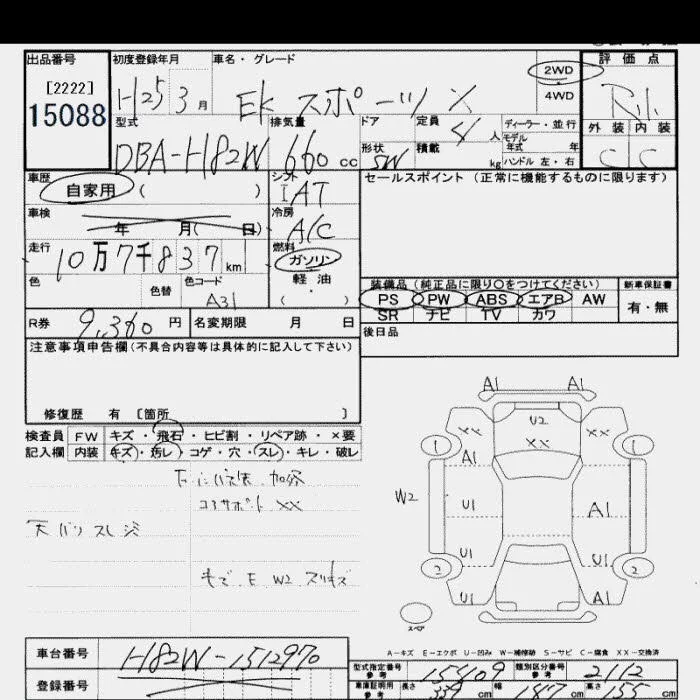 出品番号
[2222]
15088
初度登録年月
H25 3 月
車名・グレード
EK スポーツ X
2WD
4WD
評価点
外装 内装
C C
型式
DBA-H82W
排気量
660 cc
ドア
形状
5W
定員
4 人
積載
kg
ディーラー・並行
モデル
年式 年
ハンドル 左・右
車歴
自家用 ( )
シフト
IAT
車検
年 月( 日)
冷房
A/C
走行
10万7千837 km
燃料
ガソリン
軽油
( )
色
色替
色コード
A31
セールスポイント (正常に機能するものに限ります)
装備品 (純正品に限り○をつけてください)
PS PW ABS エアB AW
SR ナビ TV カワ
新車保証書
有・無
R券
9,360 円
名変期限 月 日
後日品
注意事項申告欄(不具合内容等は具体的に記入して下さい)
修復歴 有 [箇所 ]
検査員
記入欄
FW キズ・飛石・ヒビ割・リペア跡・×要
内装 キズ・汚レ・コゲ・穴・スレ・キレ・破レ
コアサポート XX
キズ E W2
A1 A1
U2
XX
XX XX
1 1
A1
W2
U1 A1
U1 U1
2 2
U1 A1
スペア
A-キズ E-エクボ U-凹み W-補修跡 S-サビ C-腐食 XX-交換済
車台番号
H82W-1512970
登録番号
型式指定番号
参考
15409
類別区分番号
参考
2112
車庫証明用
参考
長さ 339 cm
幅 147 cm
高さ 155 cm